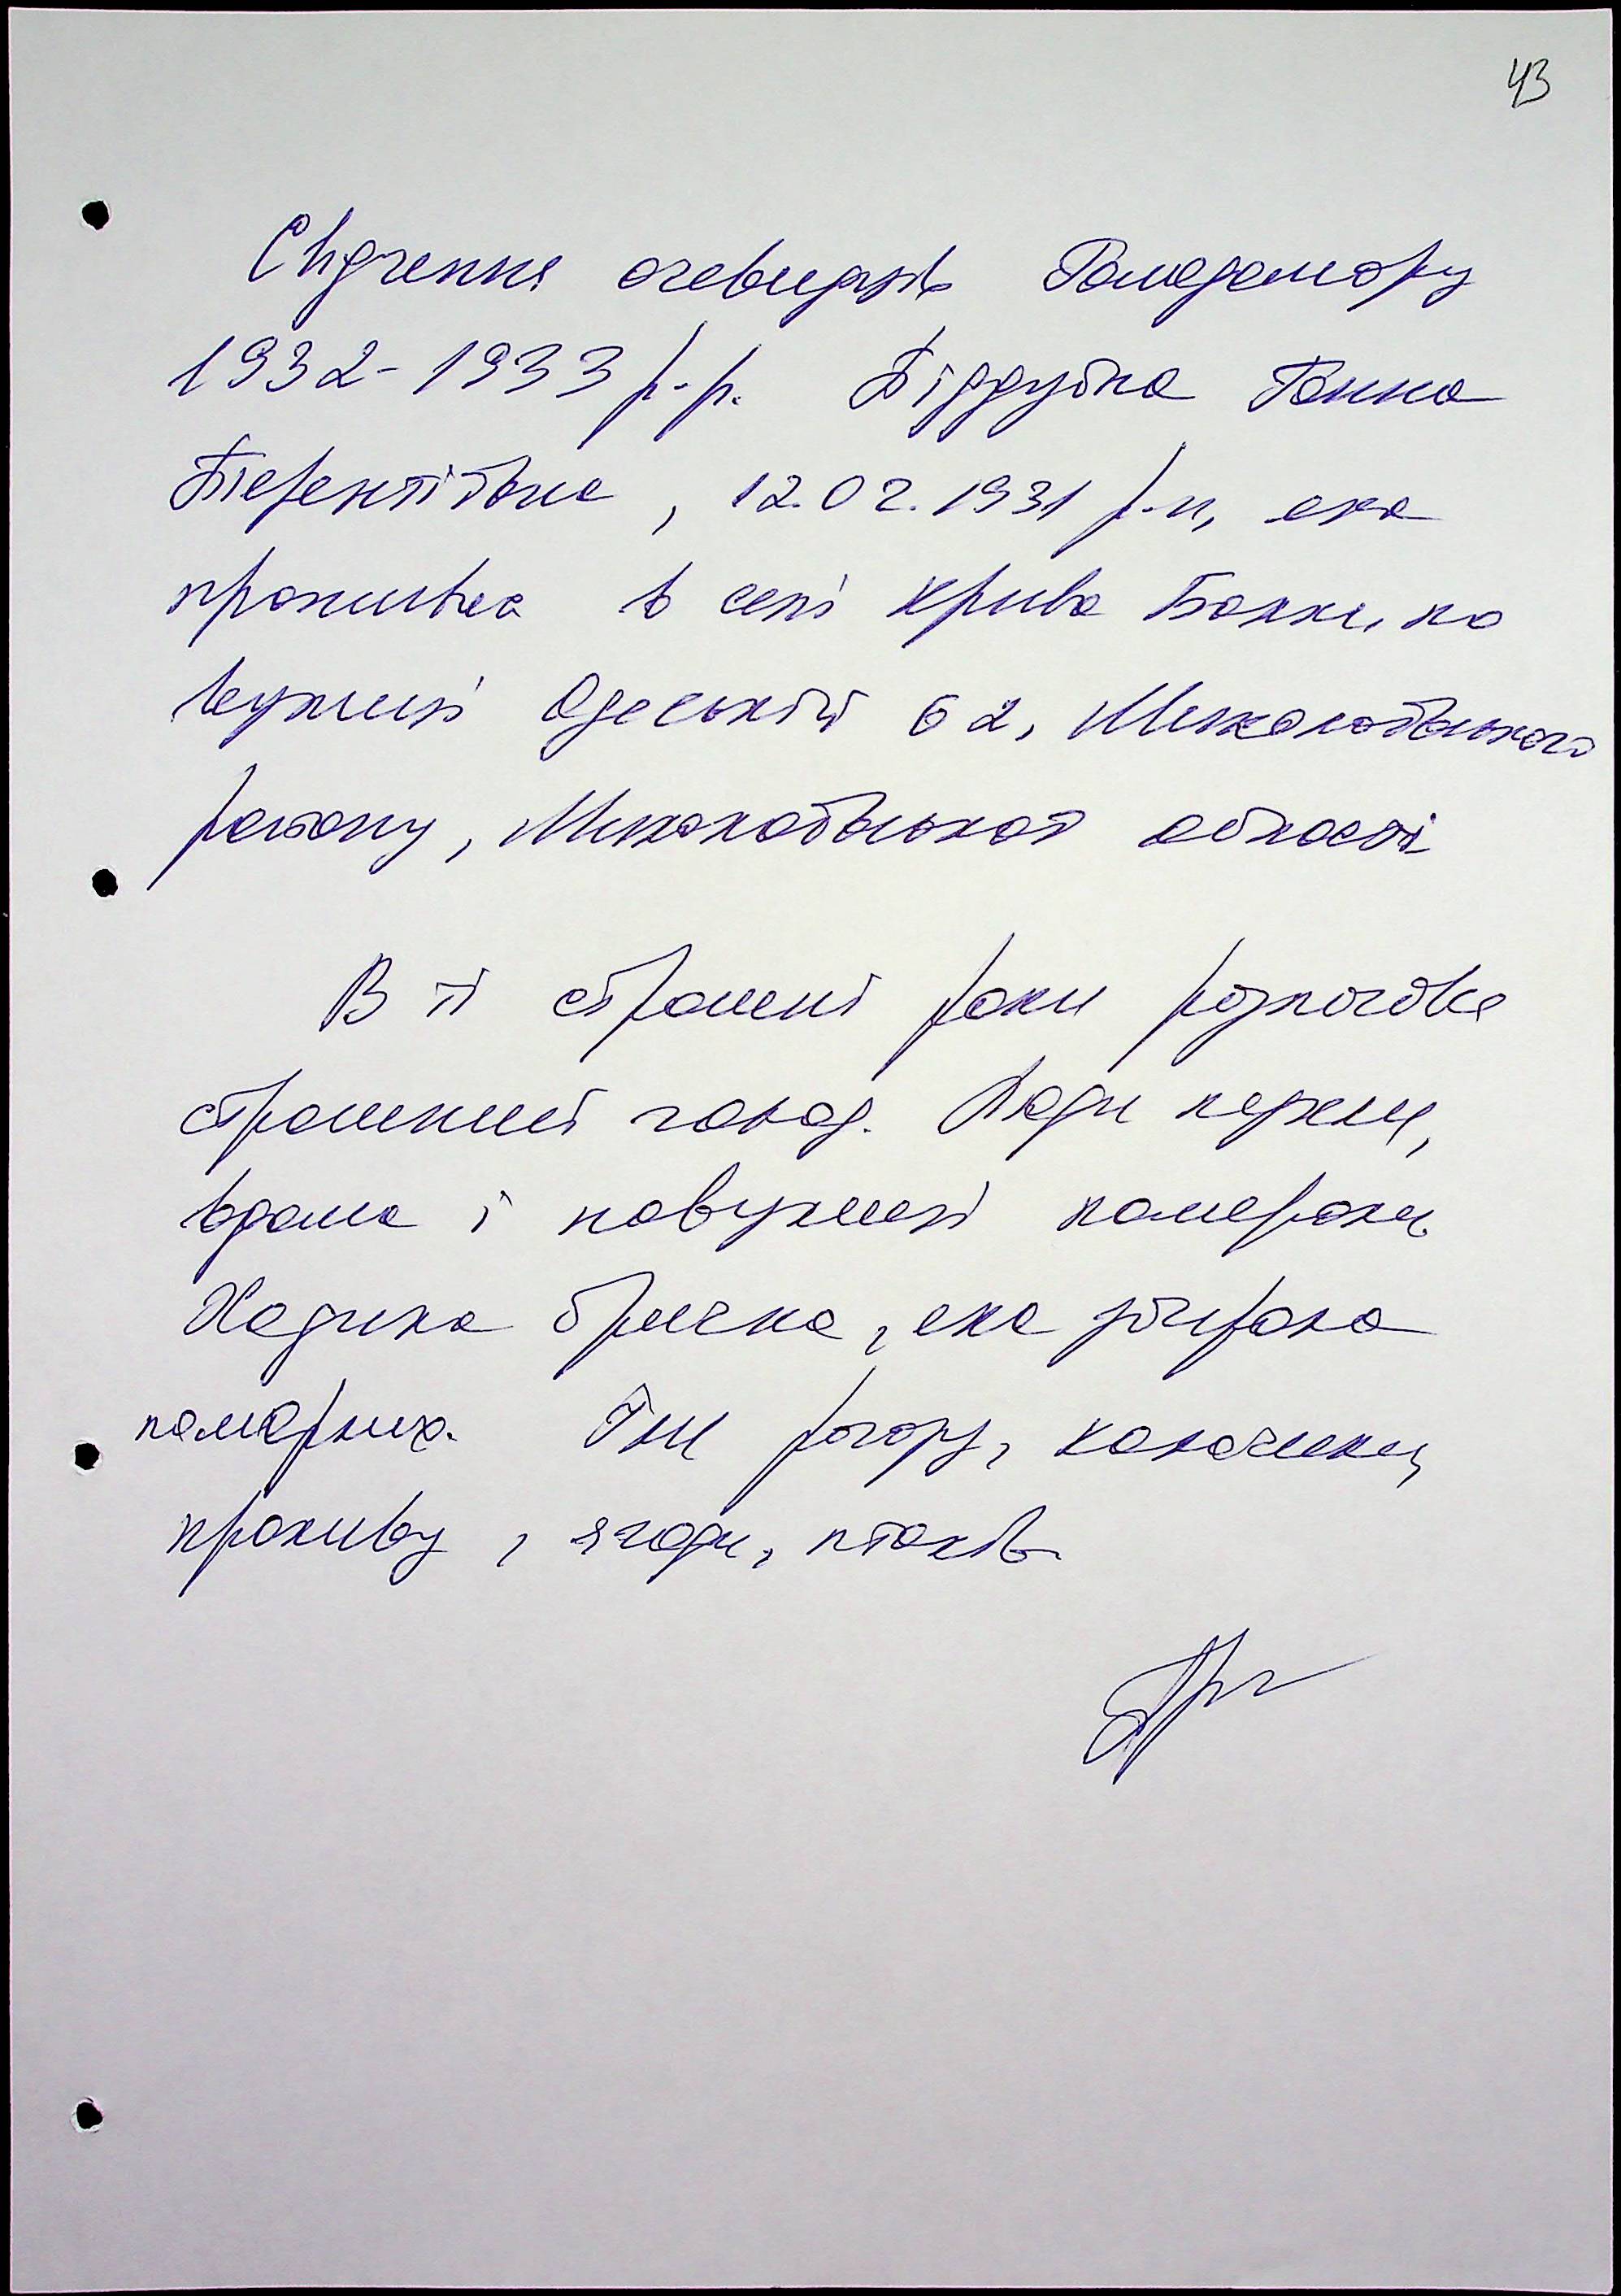 43
Свідчення очевидців Голодомору
1932-1933 р.р. Піддубна Ганна
Терентіївна, 12.02.1931 р.н, яка
проживає в селі Крива Балка, по
вулиці Одеській 62, Миколаївського
району, Миколаївської області
В ті страшні роки розпочався
страшний голод. Люди падали,
вдома і на вулиці помирали.
Ходила бричка, яка збирала
померлих. Їли рогозу, калачики,
кропиву, ягоди, птахів.